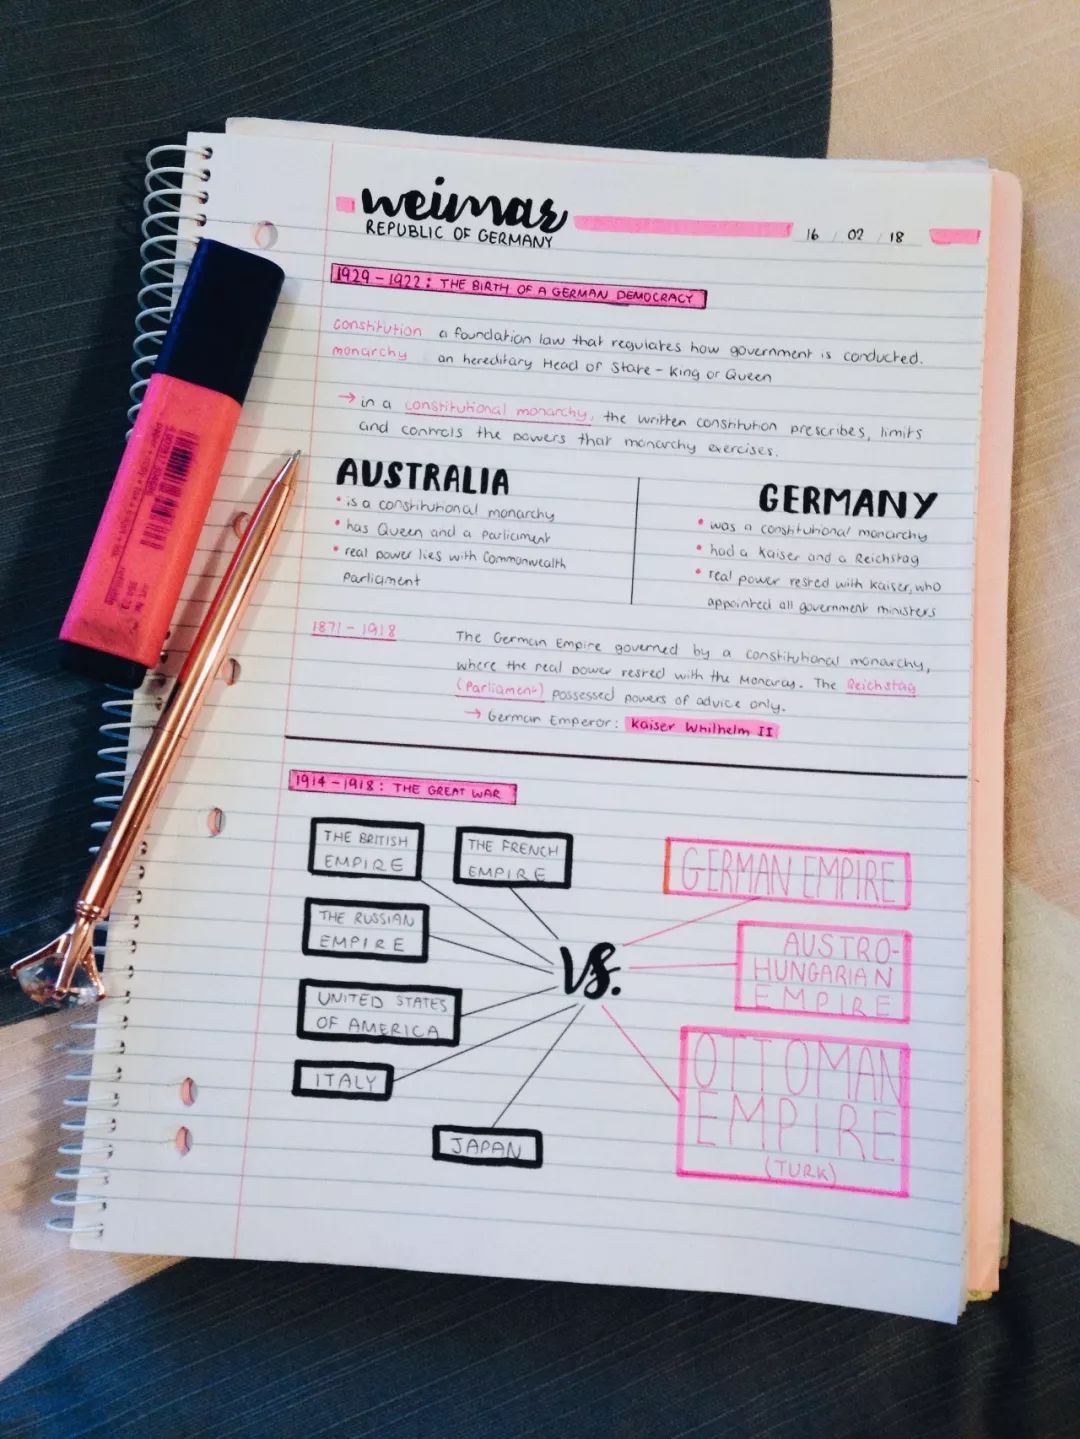 weimar
REPUBLIC OF GERMANY
16 / 02 / 18
1929 - 1922: THE BIRTH OF A GERMAN DEMOCRACY
constitution a foundation law that regulates how government is conducted.
monarchy an hereditary Head of State - King or Queen
→ in a constitutional monarchy, the written constitution prescribes, limits
and controls the powers that monarchy exercises.
AUSTRALIA
• is a constitutional monarchy
• has Queen and a parliament
• real power lies with Commonwealth
parliament
GERMANY
• was a constitutional monarchy
• had a Kaiser and a Reichstag
• real power rested with Kaiser, who
appointed all government ministers
1871 - 1918
The German Empire governed by a constitutional monarchy,
where the real power rested with the Monaray. The Reichstag
(Parliament) possessed powers of advice only.
→ German Emperor: Kaiser Whilhelm II
1914 - 1918: THE GREAT WAR
THE BRITISH
EMPIRE
THE FRENCH
EMPIRE
THE RUSSIAN
EMPIRE
UNITED STATES
OF AMERICA
ITALY
JAPAN
VS.
GERMAN EMPIRE
AUSTRO-
HUNGARIAN
EMPIRE
OTTOMAN
EMPIRE
(TURK)